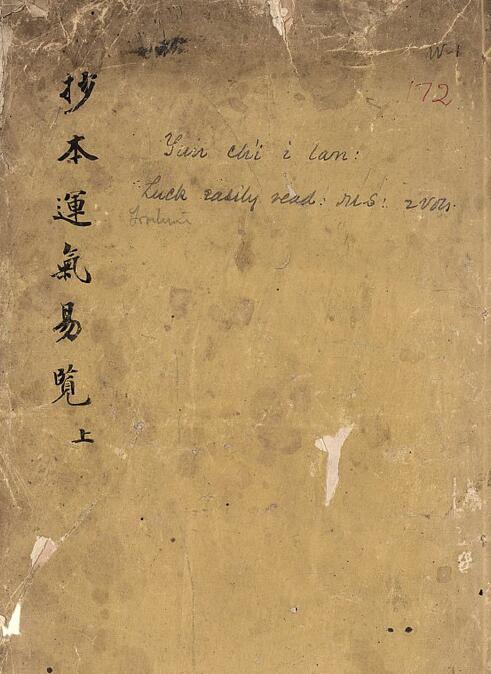 抄本運氣易覧上
W-1
172
Yün ch'i i lan:
Luck easily read: M.S: 2 vols.